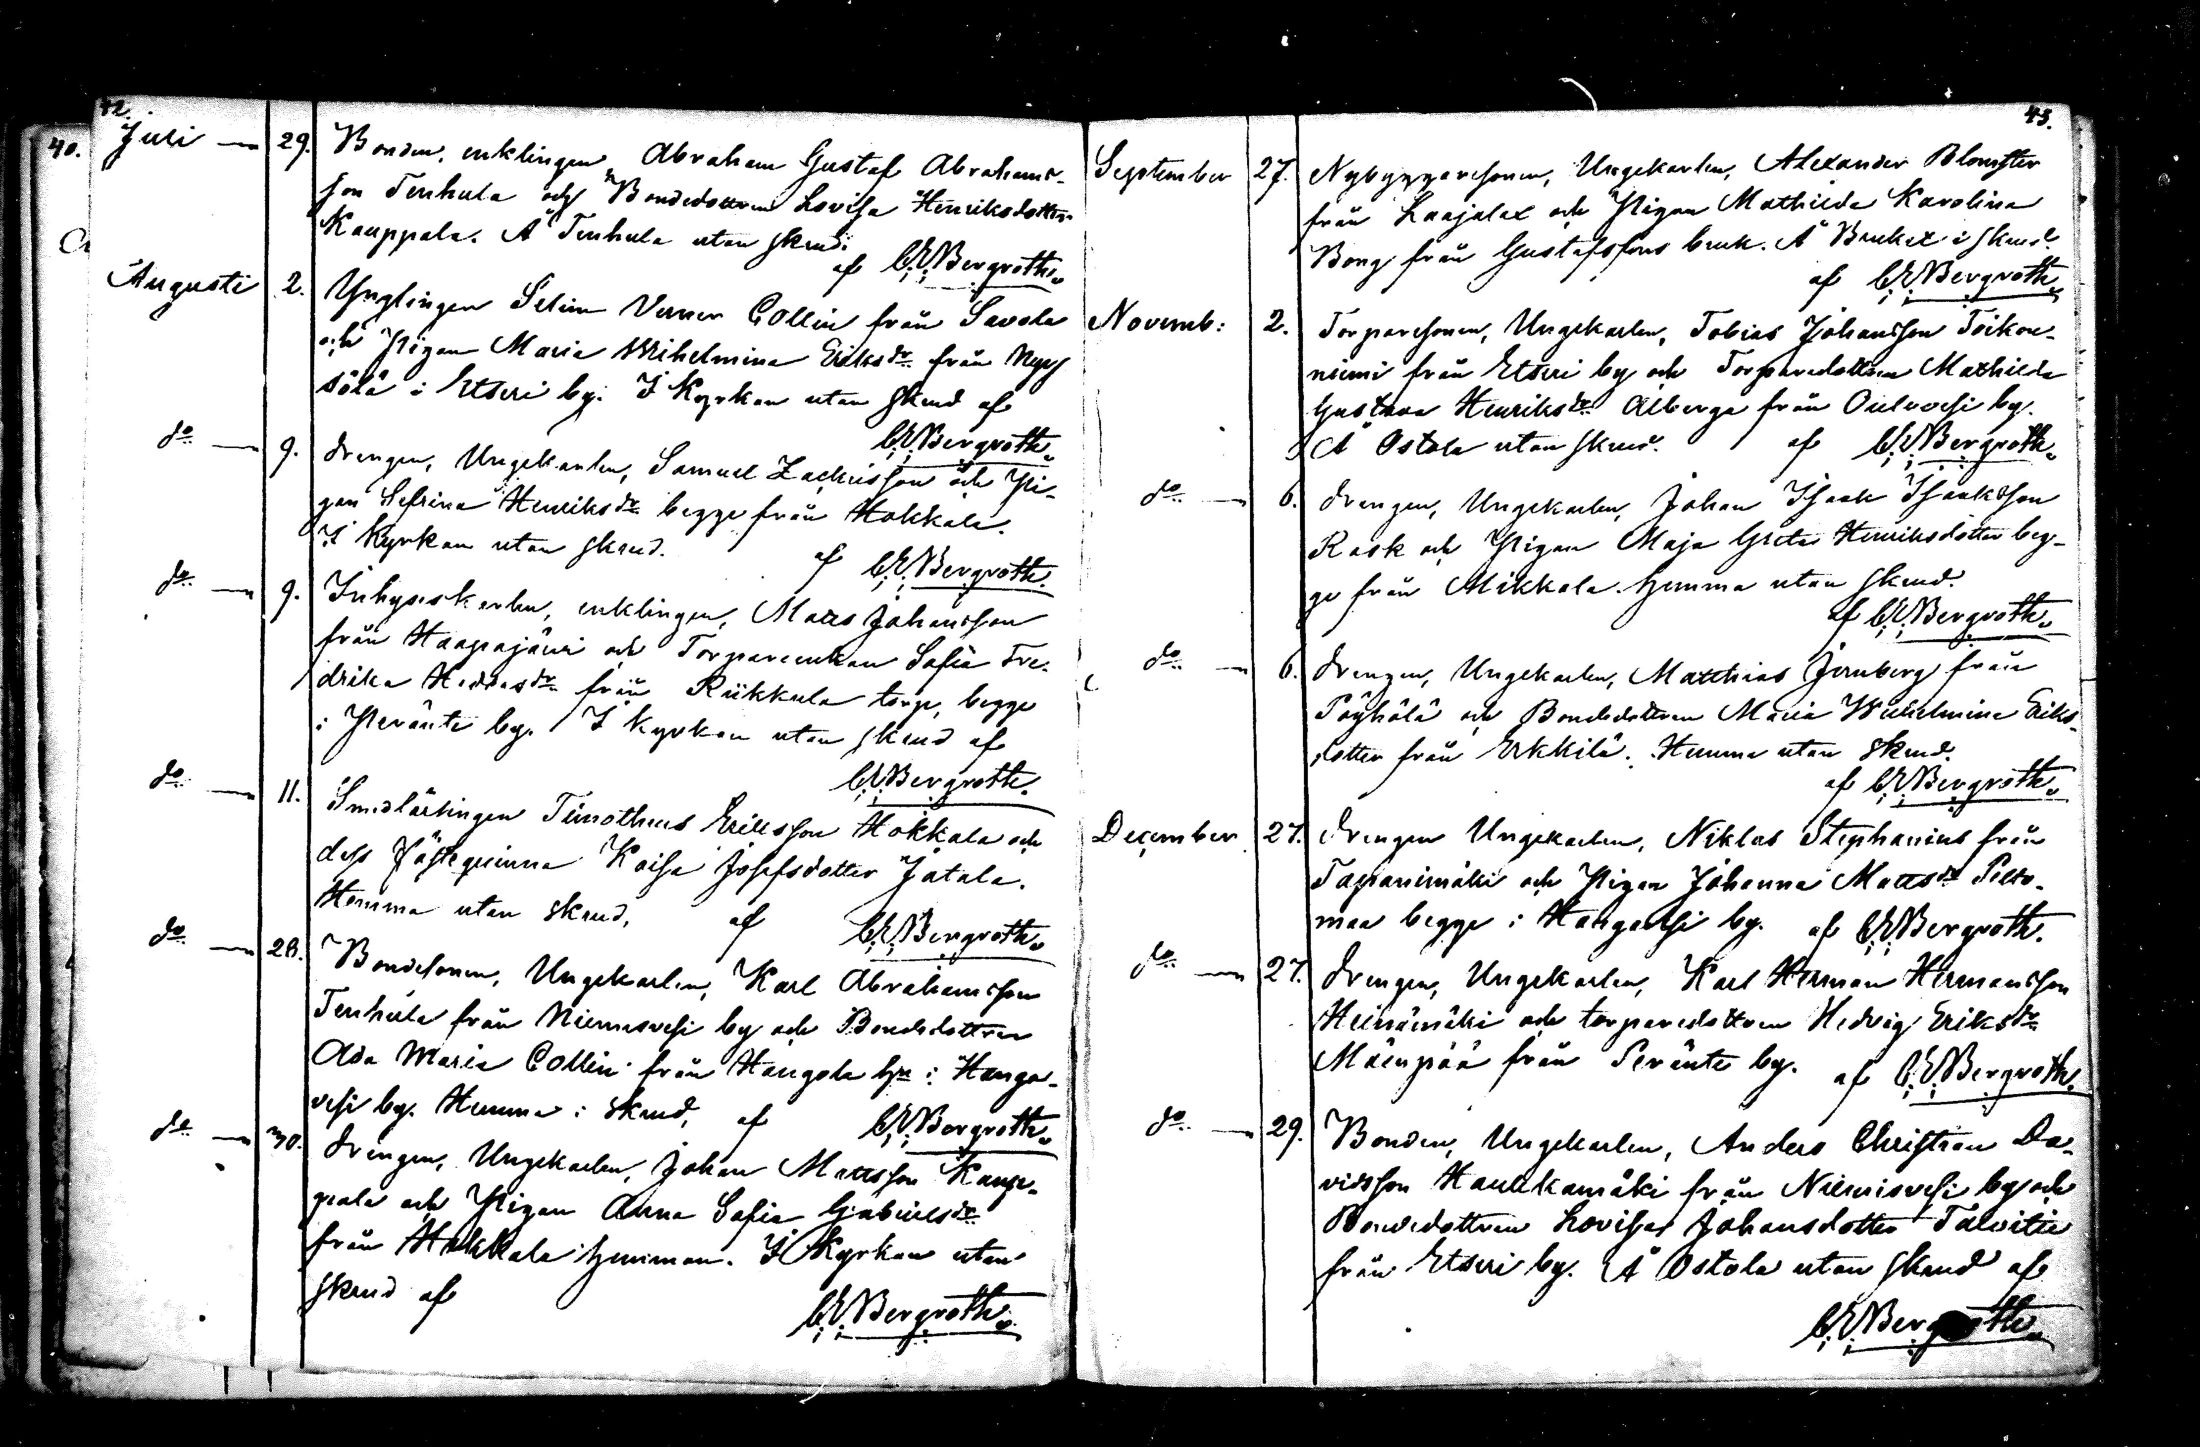 42.
40.
Juli — 29. Bonden, enklingen Abraham Gustaf Abrahams-
son Tenhula och Bondedottren Lovisa Henriksdotter
Kauppala. Å Tenhula utan skrud.
af C.E. Bergroth.
Augusti 2. Ynglingen Selim Verner Collin från Savola
och Pigan Maria Wilhelmina Eriksdr från Nyy
sölä i Etseri by. I Kyrkan utan skrud af
C.E. Bergroth.
do — 9. Drengen, Ungekarlen, Samuel Zachrisson och Pi-
gan Sefrina Henriksdr begge från Hokkala.
I Kyrkan utan skrud. af C.E. Bergroth.
do — 9. Inhyseskarlen, enklingen, Matts Johansson
från Haapajärvi och Torpareenkan Sofia Fre-
drika Heddasdr från Riikkula torp, begge
i Peränte by. I kyrkan utan skrud af
C.E. Bergroth.
do — 11. Smedlärlingen Timotheus Eriksson Hokkala och
dess Fästeqvinna Kaisa Josefsdotter Jatala.
Hemma utan skrud, af C.E. Bergroth.
do — 28. Bondesonen, Ungekarlen, Karl Abrahamsson
Tenhula från Niemisvesi by och Bondedottren
Ada Maria Collin från Hangola hn i Hanga-
vesi by. Hemma i skrud, af C.E. Bergroth.
do — 30. Drengen, Ungekarlen, Johan Mattsson Kaup-
pala och Pigan Anna Sofia Gabrielsdr
från Hokkala hemman. I Kyrkan utan
skrud af
C.E. Bergroth.
43.
September 27. Nybyggaresonen, Ungekarlen, Alexander Blomster
från Laajalax och Pigan Mathilda Karolina
Bong från Gustafsfors bruk. Å Bruket i skrud.
af C.E. Bergroth.
Novemb: 2. Torparesonen, Ungekarlen, Tobias Johansson Toikon-
niemi från Etseri by och Torparedottren Mathilda
Gustava Henriksdr Alberga från Ouluvesi by.
Å Ostola utan skrud. af C.E. Bergroth.
do — 6. Drengen, Ungekarlen, Johan Isaak Isaaksson
Rask och Pigan Maja Greta Henriksdotter beg-
ge från Mikkala. hemma utan skrud.
af C.E. Bergroth.
do — 6. Drengen, Ungekarlen, Matthias Jernberg från
Pöyhölä och Bondedottren Maria Wilhelmina Eriks-
dotter från Erkkilä. Hemma utan skrud.
af C.E. Bergroth.
December 27. Drengen Ungekarlen, Niklas Stephanius från
Tapanimäki och Pigan Johanna Mattsdr Pelto-
maa begge i Hangavesi by. af C.E. Bergroth.
do — 27. Drengen, Ungekarlen, Karl Herman Hermansson
Heinämäki och torparedottren Hedvig Eriksdr
Mäenpää från Peränte by. af C.E. Bergroth.
do — 29. Bonden, Ungekarlen, Anders Christian Da-
vidsson Haukkamäki från Niemisvesi by och
Bondedottren Lovisa Johansdotter Talvitie
från Etseri by. Å Ostola utan skrud af
C.E. Bergroth.